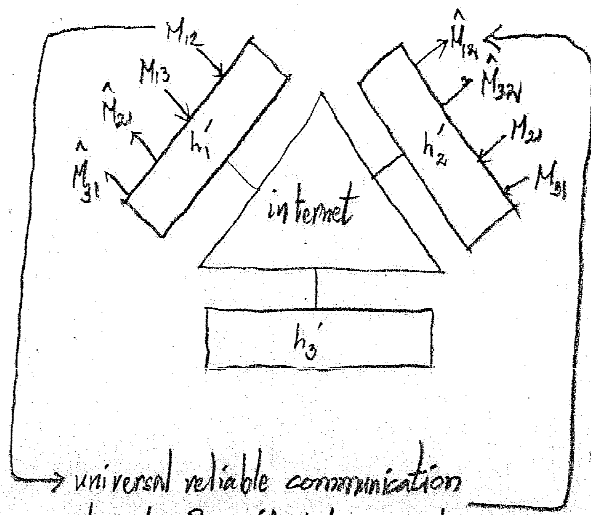 M12
M13
M̂21
M̂31
h1'
M̂12
M̂32
M21
M31
h2'
internet
h3'
universal reliable communication